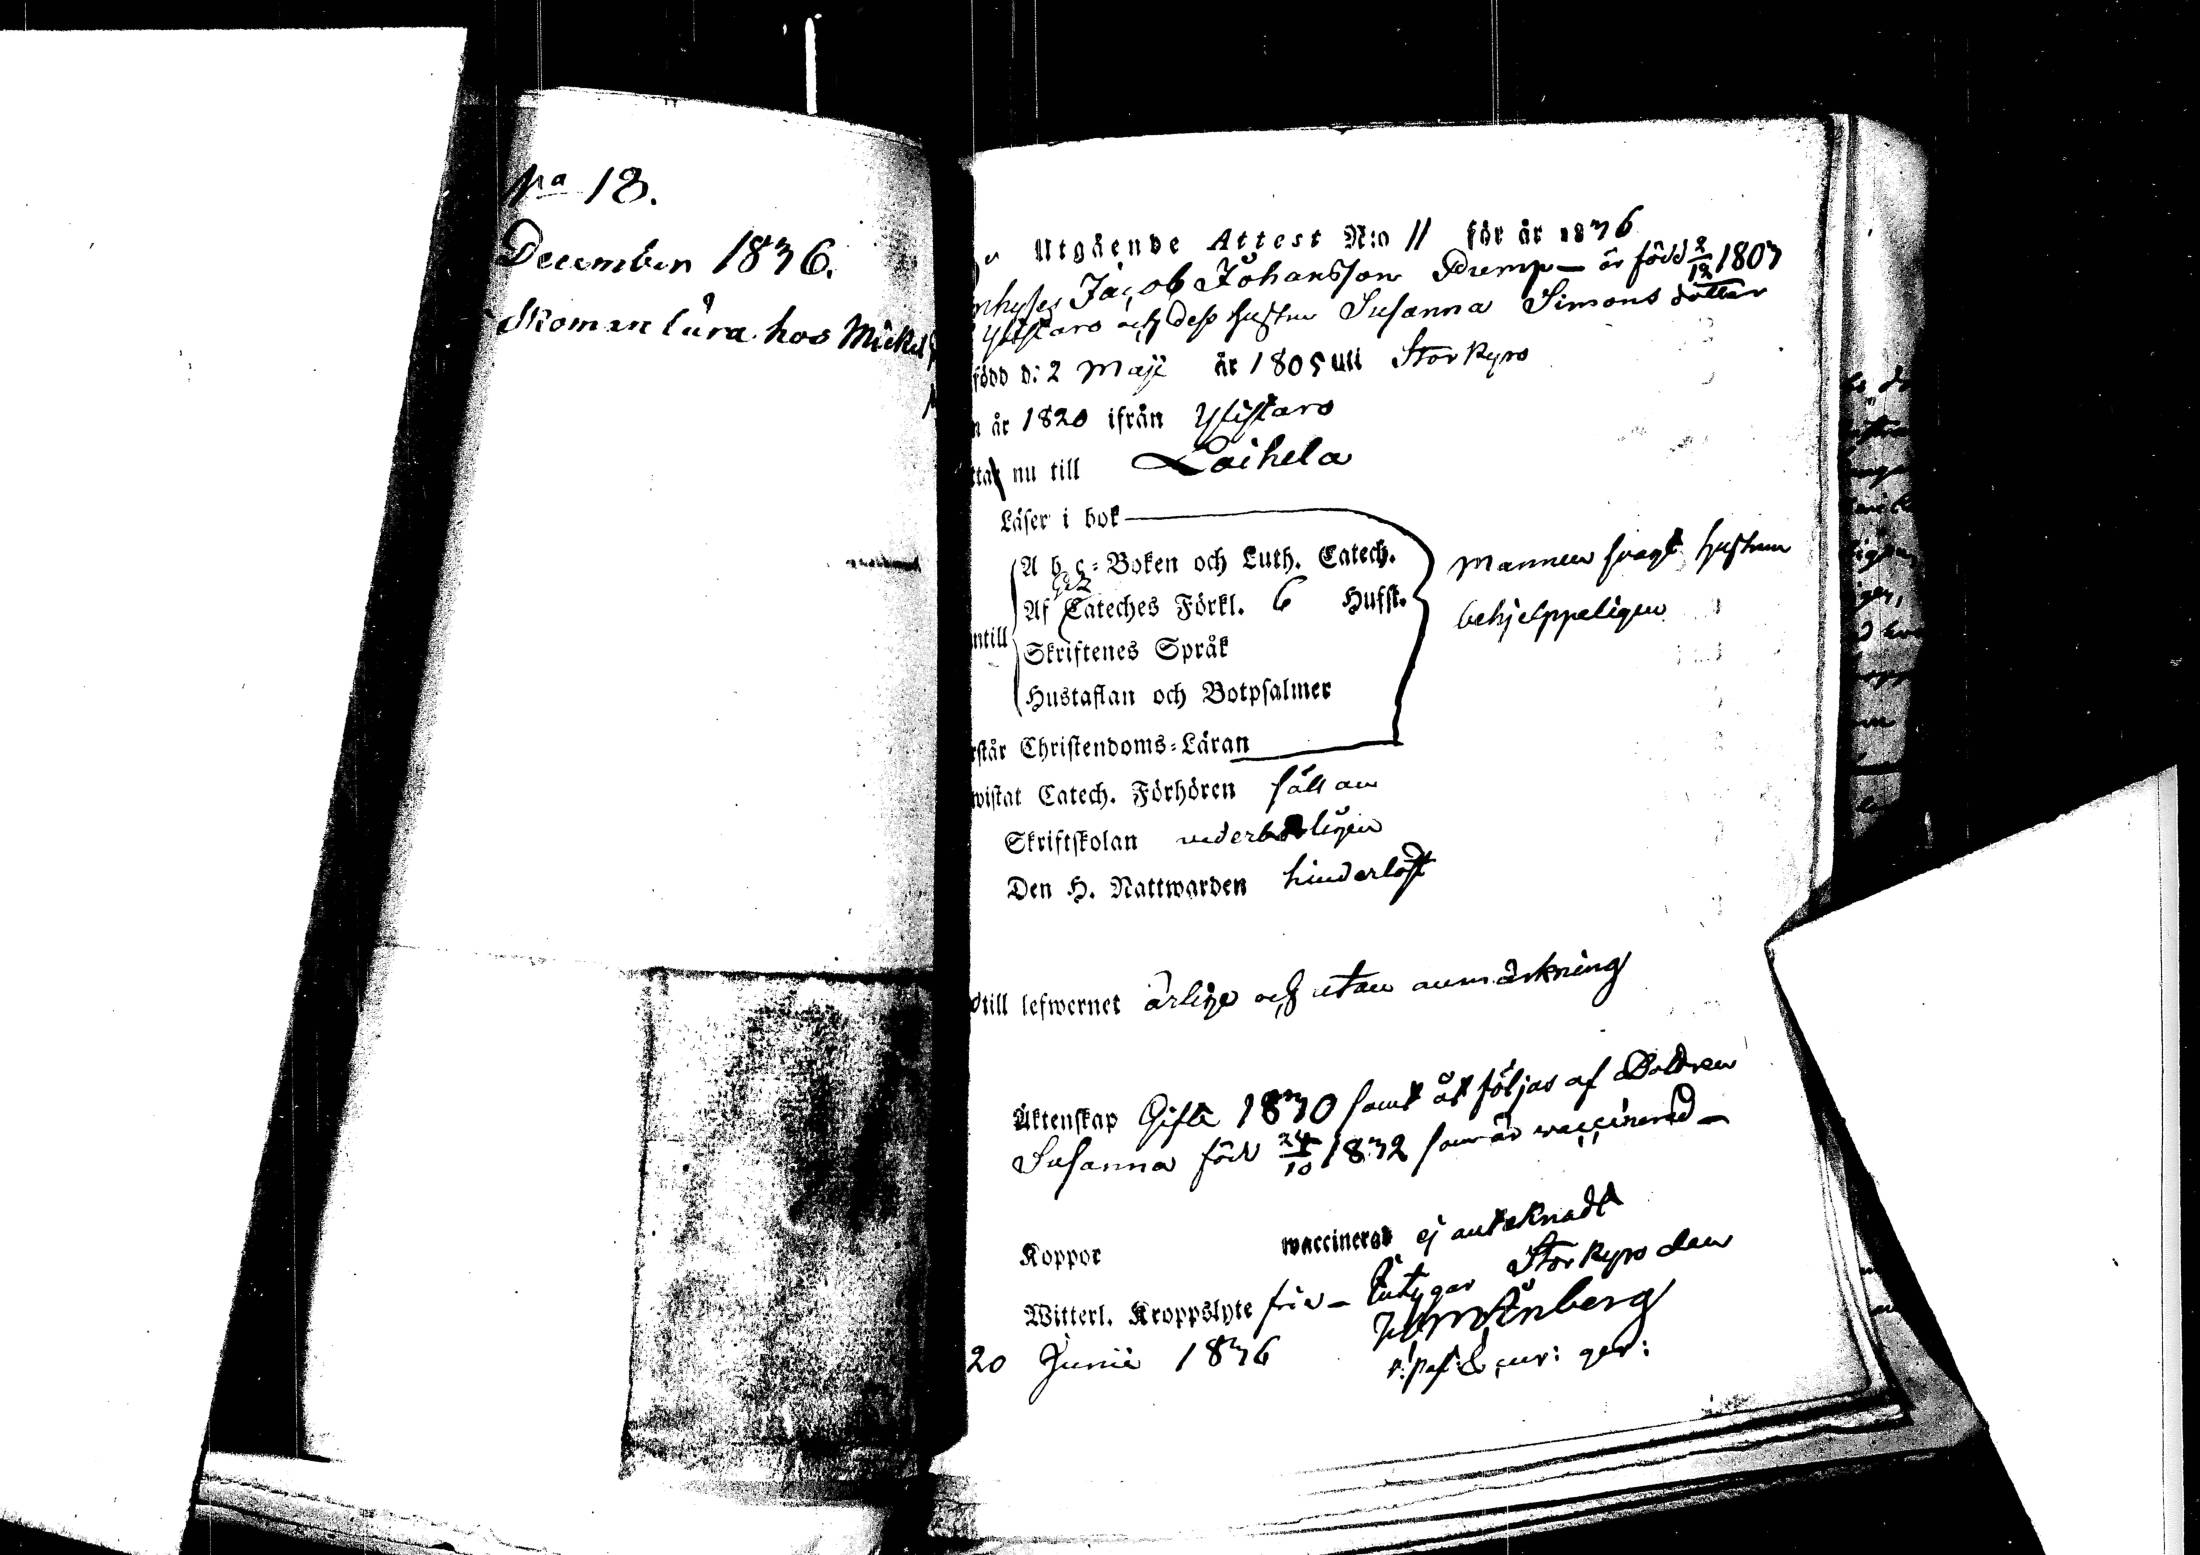 No 18.
December 1836.
Skoman lära hos Mickel
Utgående Attest N:o 11 för år 1836
Inhyses Jacob Johansson Pump – är född 2/12 1807
Ylistaro och dess hustru Susanna Simons dotter
född d: 2 Maji år 1805 uti Storkyro
n år 1820 ifrån Ylistaro
ttar nu till Laihela
Läser i bok
A b c-Boken och Luth. Catech. Mannen svagt hustrun
Af Cateches Förkl. 6 Hufst. behjelppeligen
ntill
Skriftenes Språk
Hustaflan och Botpsalmer
rstår Christendoms-Läran
wistat Catech. Förhören sällan
Skriftskolan vederbörligen
Den H. Nattwarden hinderlöst
dtill lefwernet ärlige och utan anmärkning
Äktenskap Gifte 1830 samt åtföljas af Dottren
Susanna född 24/10 1832 som är waccinerad –
Koppor waccinerat ej anteknadt
Witterl. Kroppslyte fria – Intygar Storkyro den
20 Junii 1836
v: past: & cur: ger: